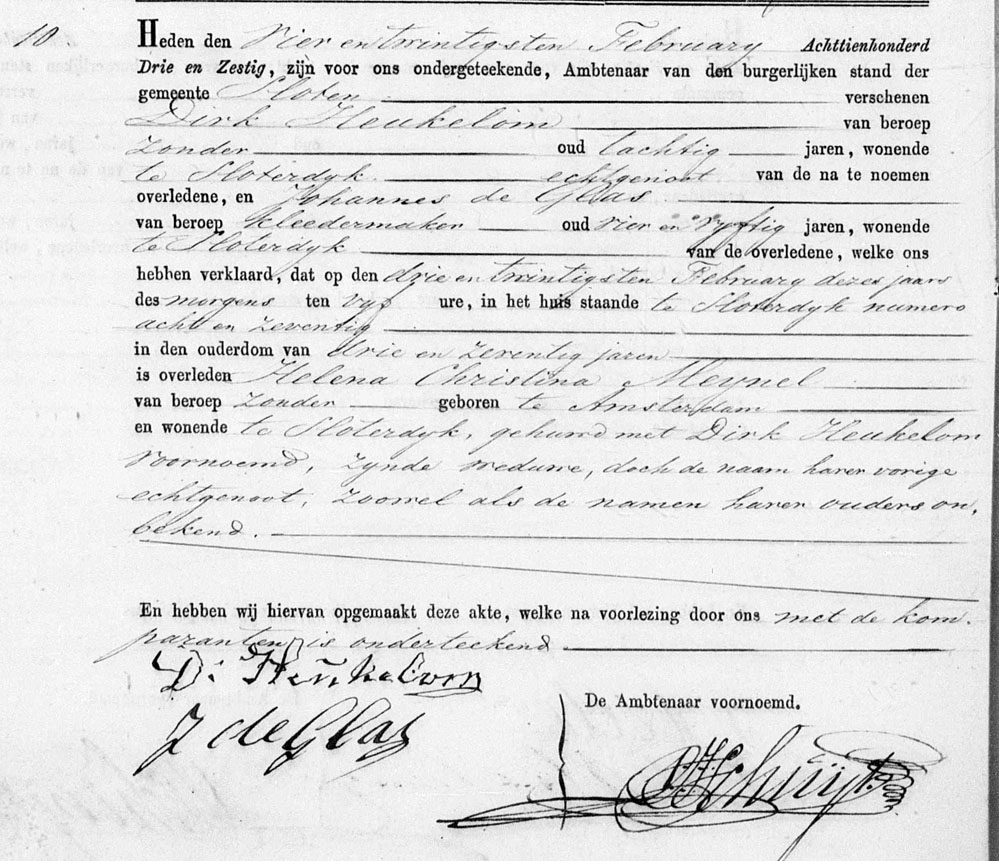 10
Heden den Vier en twintigsten February Achttienhonderd
Drie en Zestig, zijn voor ons ondergeteekende, Ambtenaar van den burgerlijken stand der
gemeente Sloten verschenen
Dirk Heukelom van beroep
zonder oud tachtig jaren, wonende
te Sloterdyk echtgenoot van de na te noemen
overledene, en Johannes de Glas
van beroep kleedermaker oud vier en vyftig jaren, wonende
te Sloterdyk van de overledene, welke ons
hebben verklaard, dat op den drie en twintigsten February dezes jaars
des morgens ten vyf ure, in het huis staande te Sloterdyk numero
acht en zeventig
in den ouderdom van drie en zeventig jaren
is overleden Helena Christina Meynel
van beroep zonder geboren te Amsterdam
en wonende te Sloterdyk, gehuwd met Dirk Heukelom
voornoemd, zynde weduwe, doch de naam harer vorige
echtgenoot, zoowel als de namen harer ouders on,
bekend.
En hebben wij hiervan opgemaakt deze akte, welke na voorlezing door ons met de kom,
paranten is onderteekend
D. Heukelom
J de Glas
De Ambtenaar voornoemd.